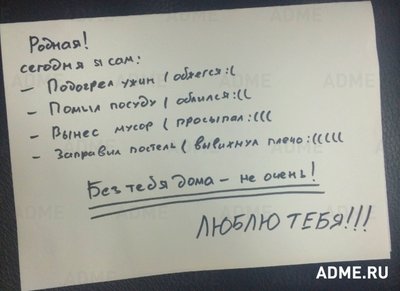 Родная!
сегодня я сам:
– Подогрел ужин (обжегся:((
– Помыл посуду (облился:((
– Вынес мусор (просыпал:(((
– Заправил постель (вывихнул плечо:(((((
Без тебя дома – не очень!
ЛЮБЛЮ ТЕБЯ!!!
ADME.RU